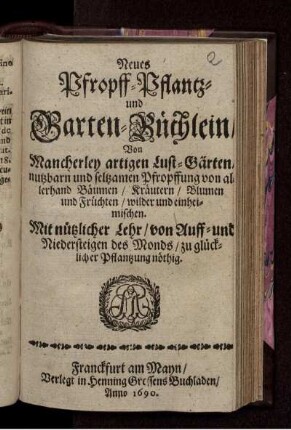 2
Neues
Pfropff-Pflantz-
und
Garten-Büchlein/
Von
Mancherley artigen Lust-Gärten/
nutzbarn und seltzamen Pfropffung von al-
lerhand Bäumen/ Kräutern/ Blumen
und Früchten/ wilder und einhei-
mischen.
Mit nützlicher Lehr/ von Auff- und
Niedersteigen des Monds/ zu glück-
licher Pflantzung nöthig.
Franckfurt am Mayn/
Verlegt in Henning Grossens Buchladen/
Anno 1690.